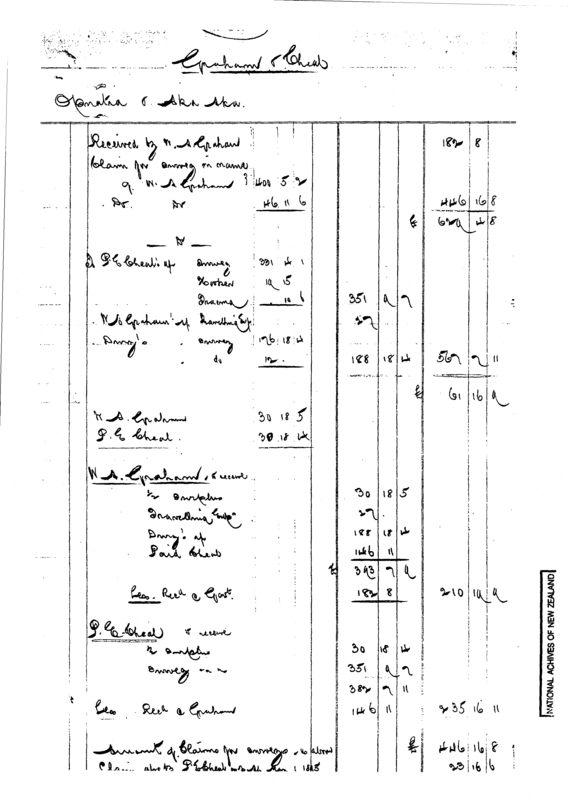 Graham & Cheal
& Aka Aka.
Received by W. A. Graham 182 8
Claim for survey in name
of W. A. Graham 400 5 2
Do. Do 46 11 6 446 16 8
£ 629 4 8
P. E. Cheal's a/c survey 331 4 1
19 15
10 6 351 9 7
W. A. Graham's a/c Travelling Exp. 27
survey 176 18 4
do 12 . 188 18 4 567 7 11
£ 61 16 9
W. A. Graham 30 18 5
P. E. Cheal. 30 18 4
W. A. Graham, to receive
½ surplus 30 18 5
Travelling Exp. 27
a/c 188 18 4
Paid Cheal 146 11
£ 393 7 9
Less. Recd 182 8 210 19 9
P. E. Cheal to receive
½ surplus 30 18 4
survey 351 9 7
382 7 11
Less Recd Graham 146 11 235 16 11
Amount of Claims for surveys as above £ 446 16 8
23 16 6
NATIONAL ARCHIVES OF NEW ZEALAND